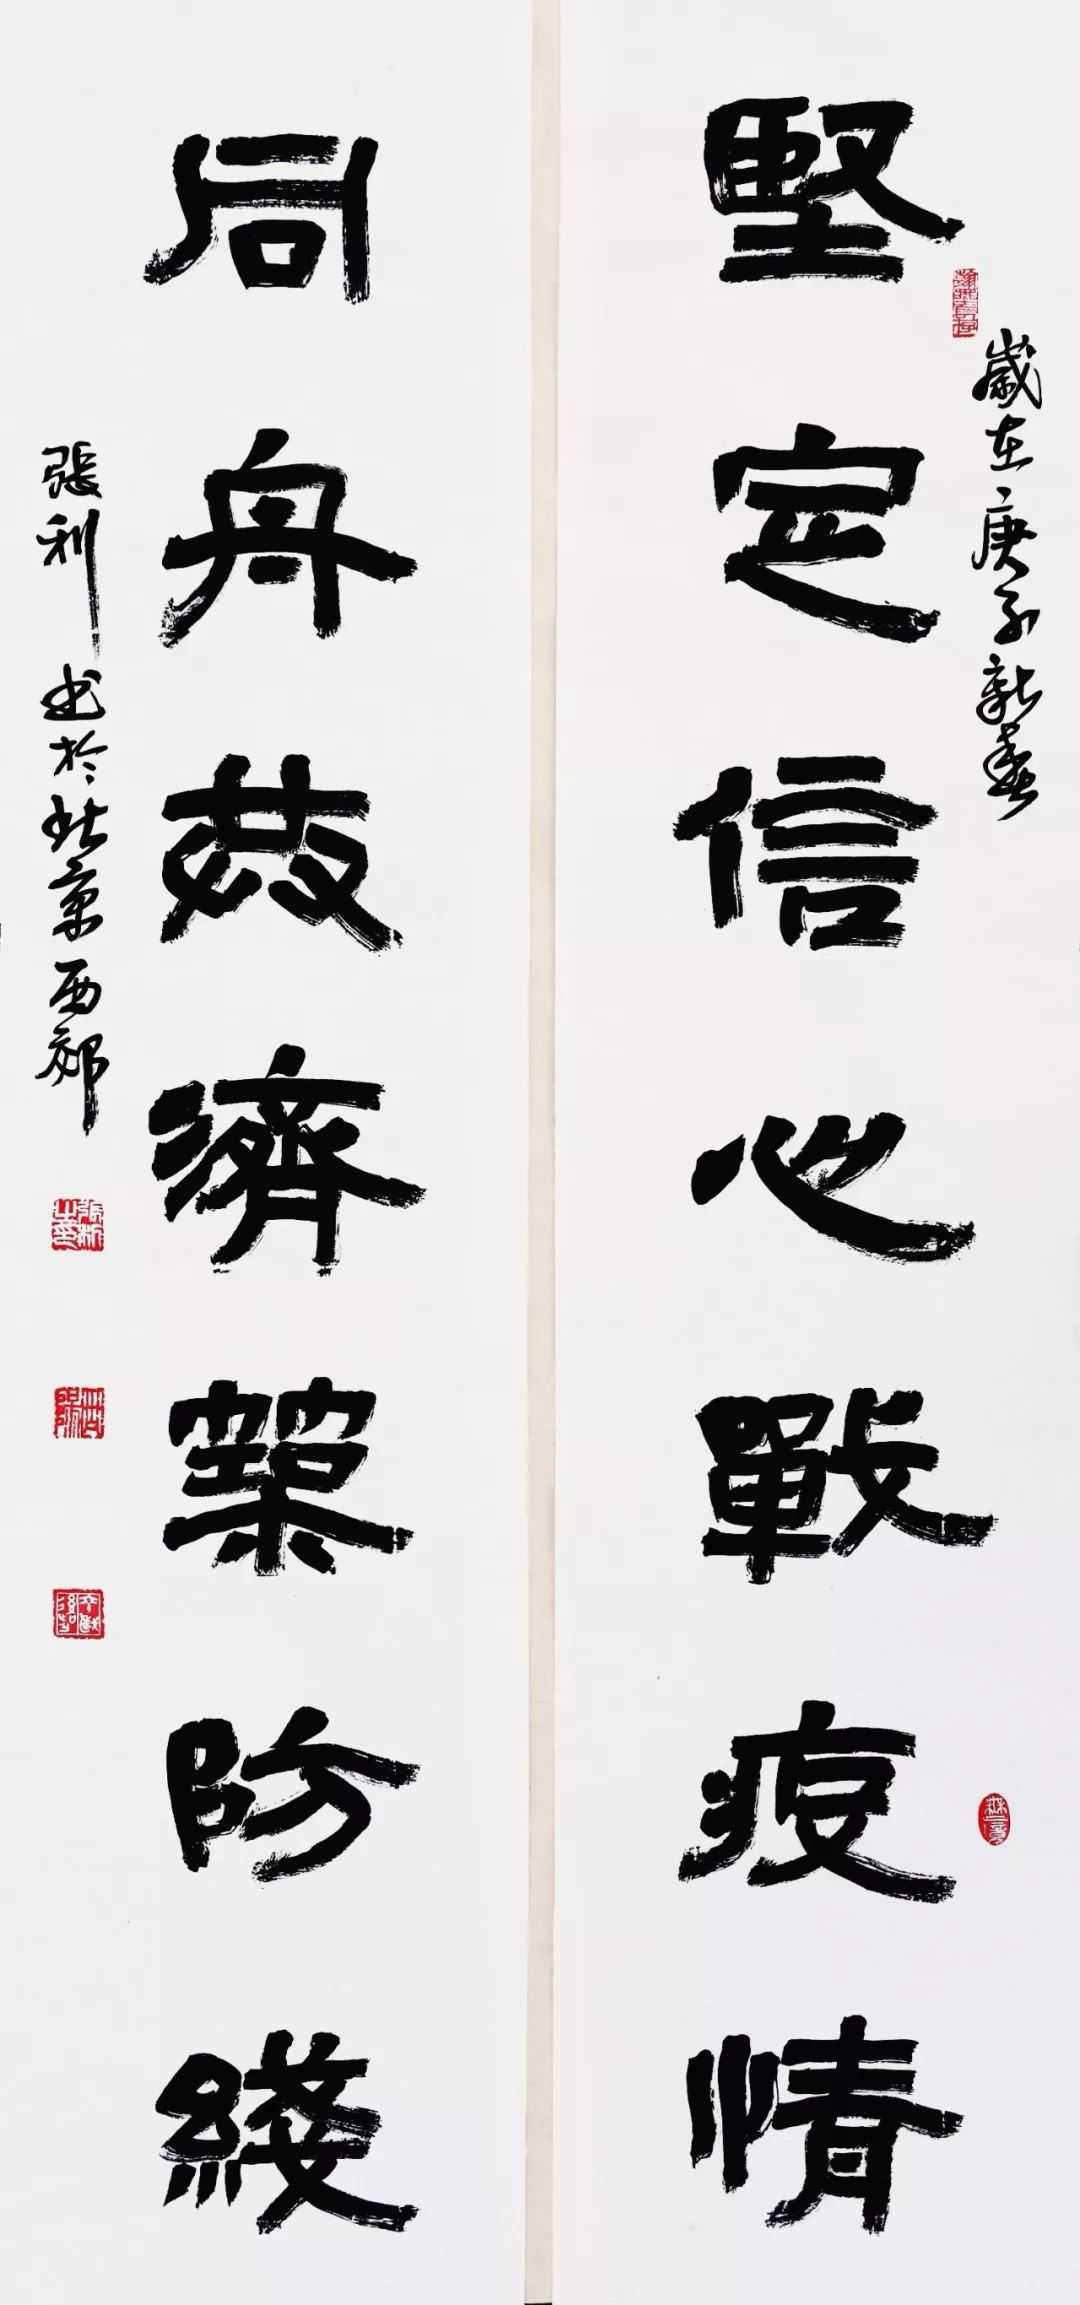 堅定信心戰疫情
歲在庚子新春
同舟共濟築防綫
張利书於北京西郊